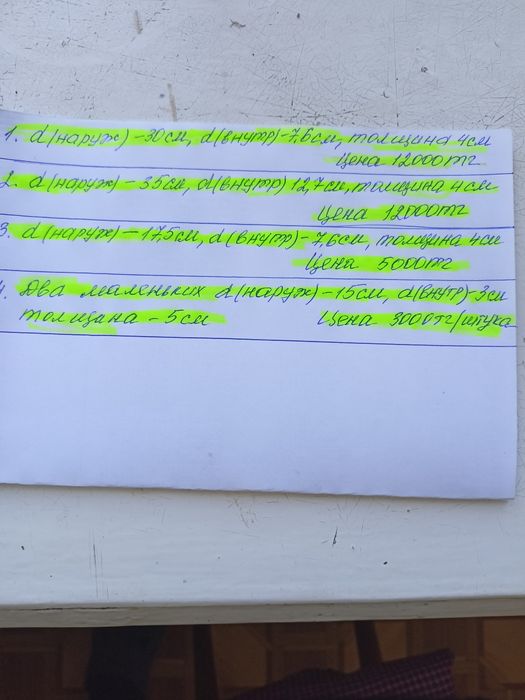 1. d(наруж) - 30см, d(внутр) - 7,6см, толщина 4см
Цена 12000тг
2. d(наруж) - 35см, d(внутр) 12,7см, толщина 4см
Цена 12000тг
3. d(наруж) - 17,5см, d(внутр) - 7,6см, толщина 4см
Цена 5000тг
4. Два маленьких d(наруж) - 15см, d(внутр) - 3см
толщина - 5см Цена 3000тг/штука